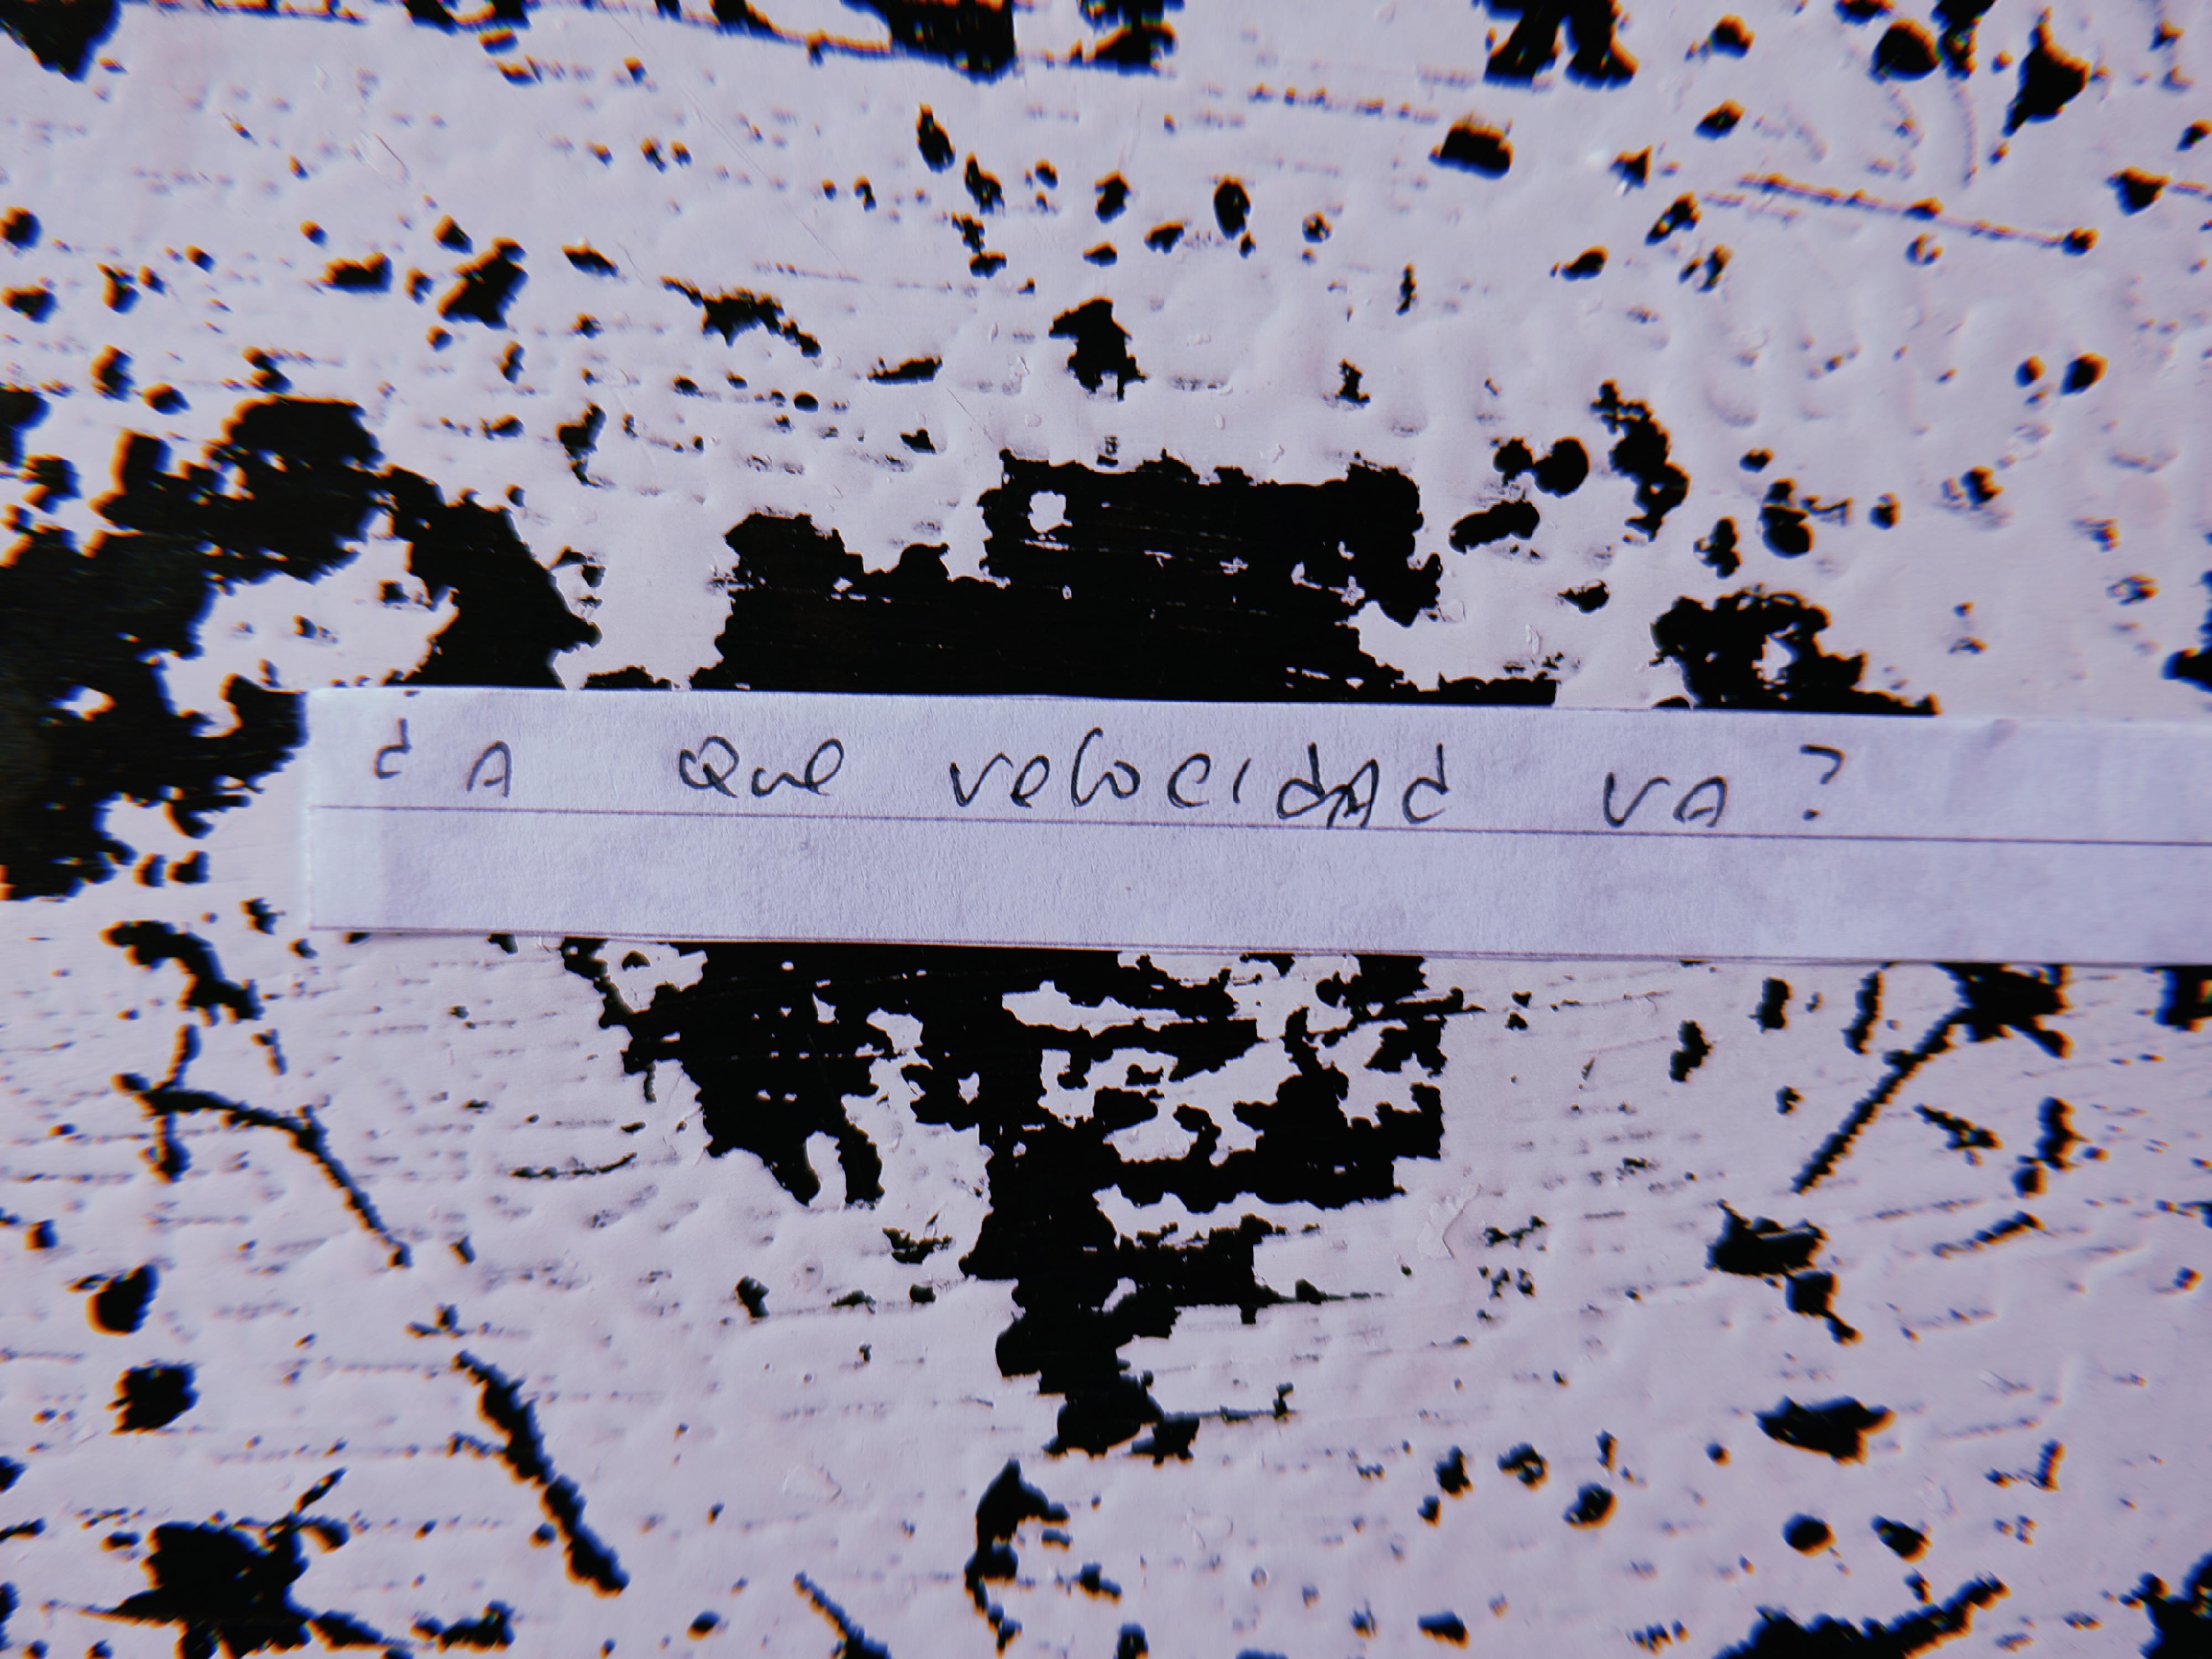 ¿A que velocidad va?